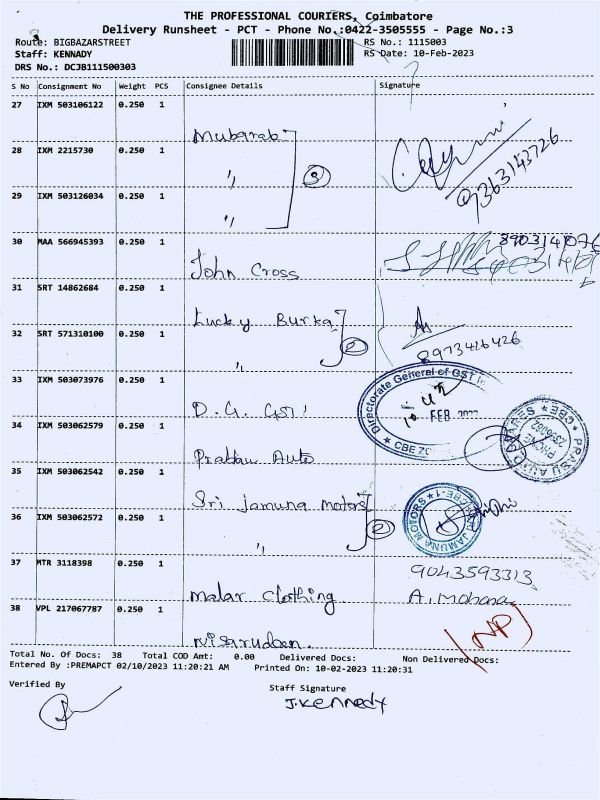 THE PROFESSIONAL COURIERS, Coimbatore
Delivery Runsheet - PCT - Phone No.:0422-3505555 - Page No.:3
Route: BIGBAZARSTREET
RS No.: 1115003
Staff: KENNADY
RS Date: 10-Feb-2023
DRS No.: DCJB111500303
S No Consignment No Weight PCS Consignee Details Signature
27 IXM 503106122 0.250 1
Mubarak
28 IXM 2215730 0.250 1
" 3
9363143726
29 IXM 503126034 0.250 1
"
30 MAA 566945393 0.250 1
John Cross
31 SRT 14862684 0.250 1
Lucky Burka
32 SRT 571310100 0.250 1
" 2
8973426426
33 IXM 503073976 0.250 1
D.G. GST
Directorate General of GST
FEB
CBE
34 IXM 503062579 0.250 1
Prabhu Auto
PHONE
CBE
35 IXM 503062542 0.250 1
Sri Jamuna Motors
36 IXM 503062572 0.250 1
" 2
JAMUNA MOTORS
CBE-1
37 MTR 3118398 0.250 1
9043593313
Malar Clothing
38 VPL 217067787 0.250 1
Nisarudeen.
(NP)
Total No. Of Docs: 38 Total COD Amt: 0.00 Delivered Docs: Non Delivered Docs:
Entered By :PREMAPCT 02/10/2023 11:20:21 AM Printed On: 10-02-2023 11:20:31
Verified By
Staff Signature
J.Kennedy